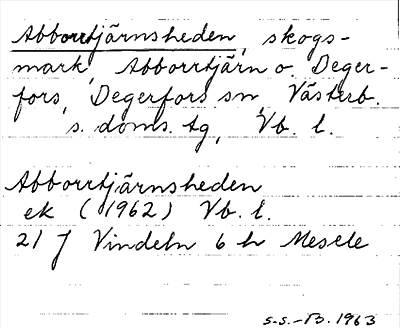 Abborrtjärnsheden, skogs-
mark, Abborrtjärn o. Deger-
fors, Degerfors sn, Västerb.
s. doms. tg, Vb. l.
Abborrtjärnsheden
ek (1962) Vb. l.
21 J Vindeln 6 h Mesele
s.s.-B. 1963